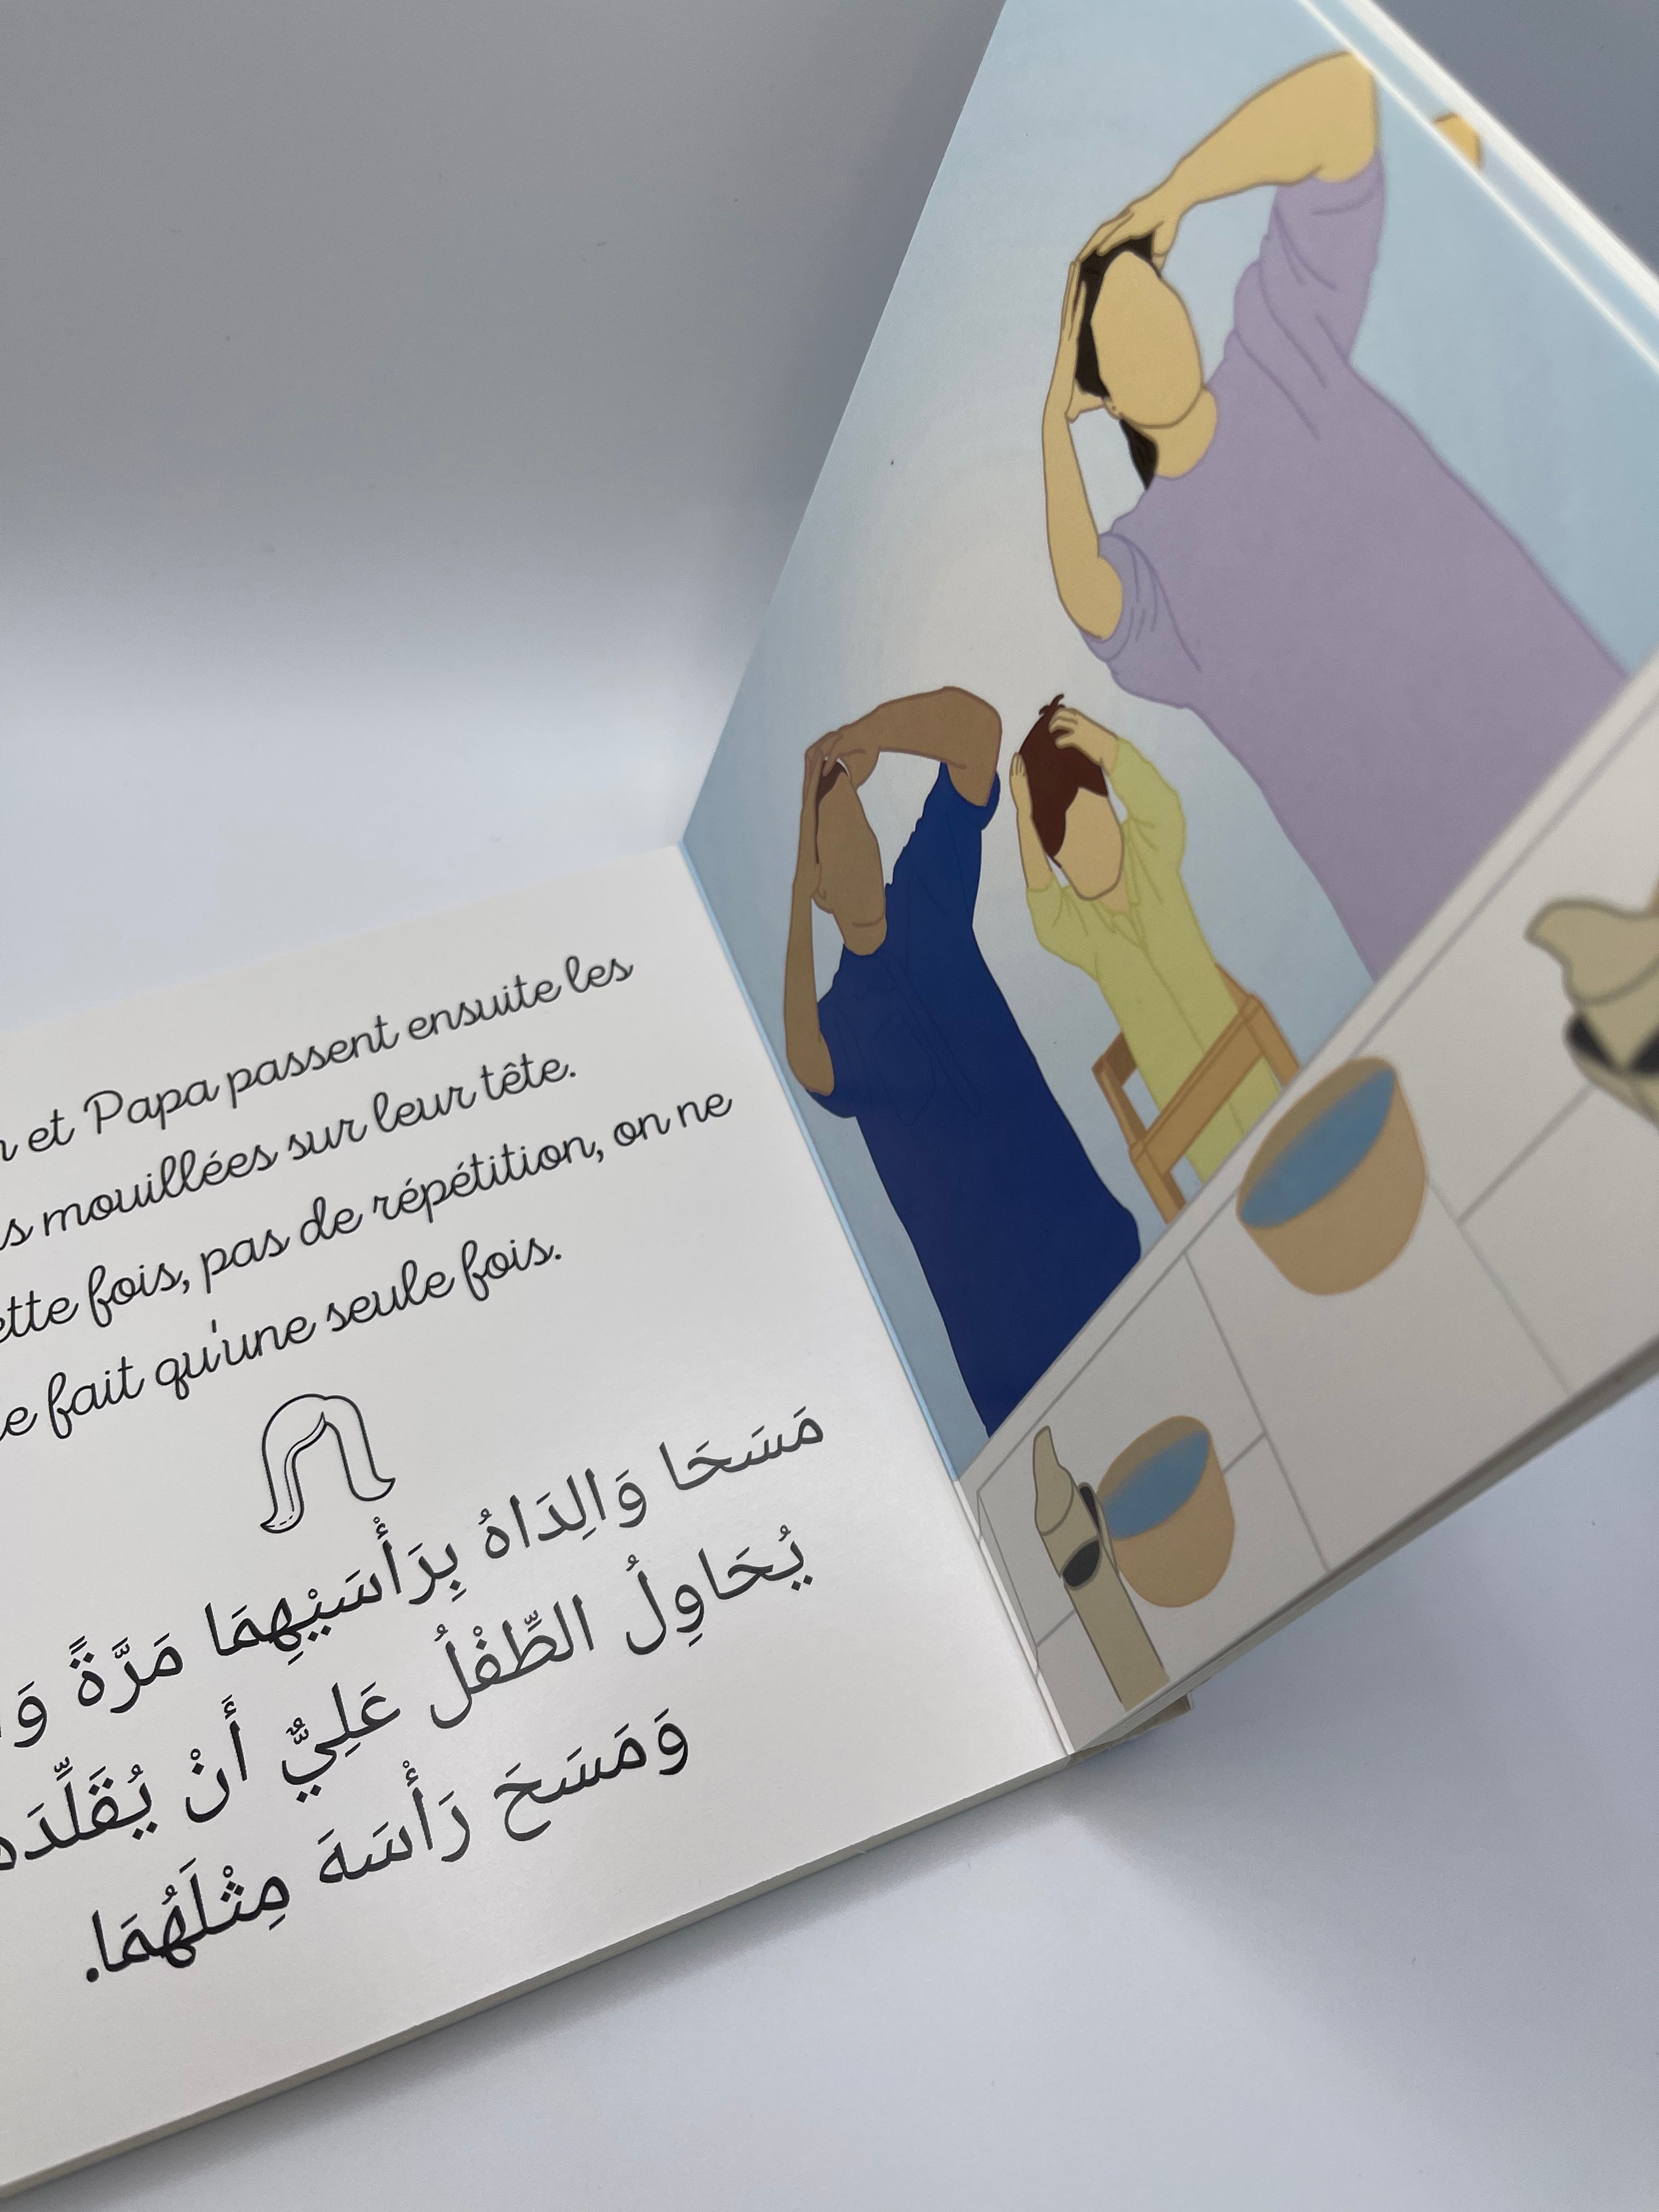 et Papa passent ensuite les
mouillées sur leur tête.
fois, pas de répétition, on ne
fait qu'une seule fois.
مَسَحَا وَالِدَاهُ بِرَأْسَيْهِمَا مَرَّةً
يُحَاوِلُ الطِّفْلُ عَلِيٌّ أَنْ
وَمَسَحَ رَأْسَهَ مِثْلَهُمَا.